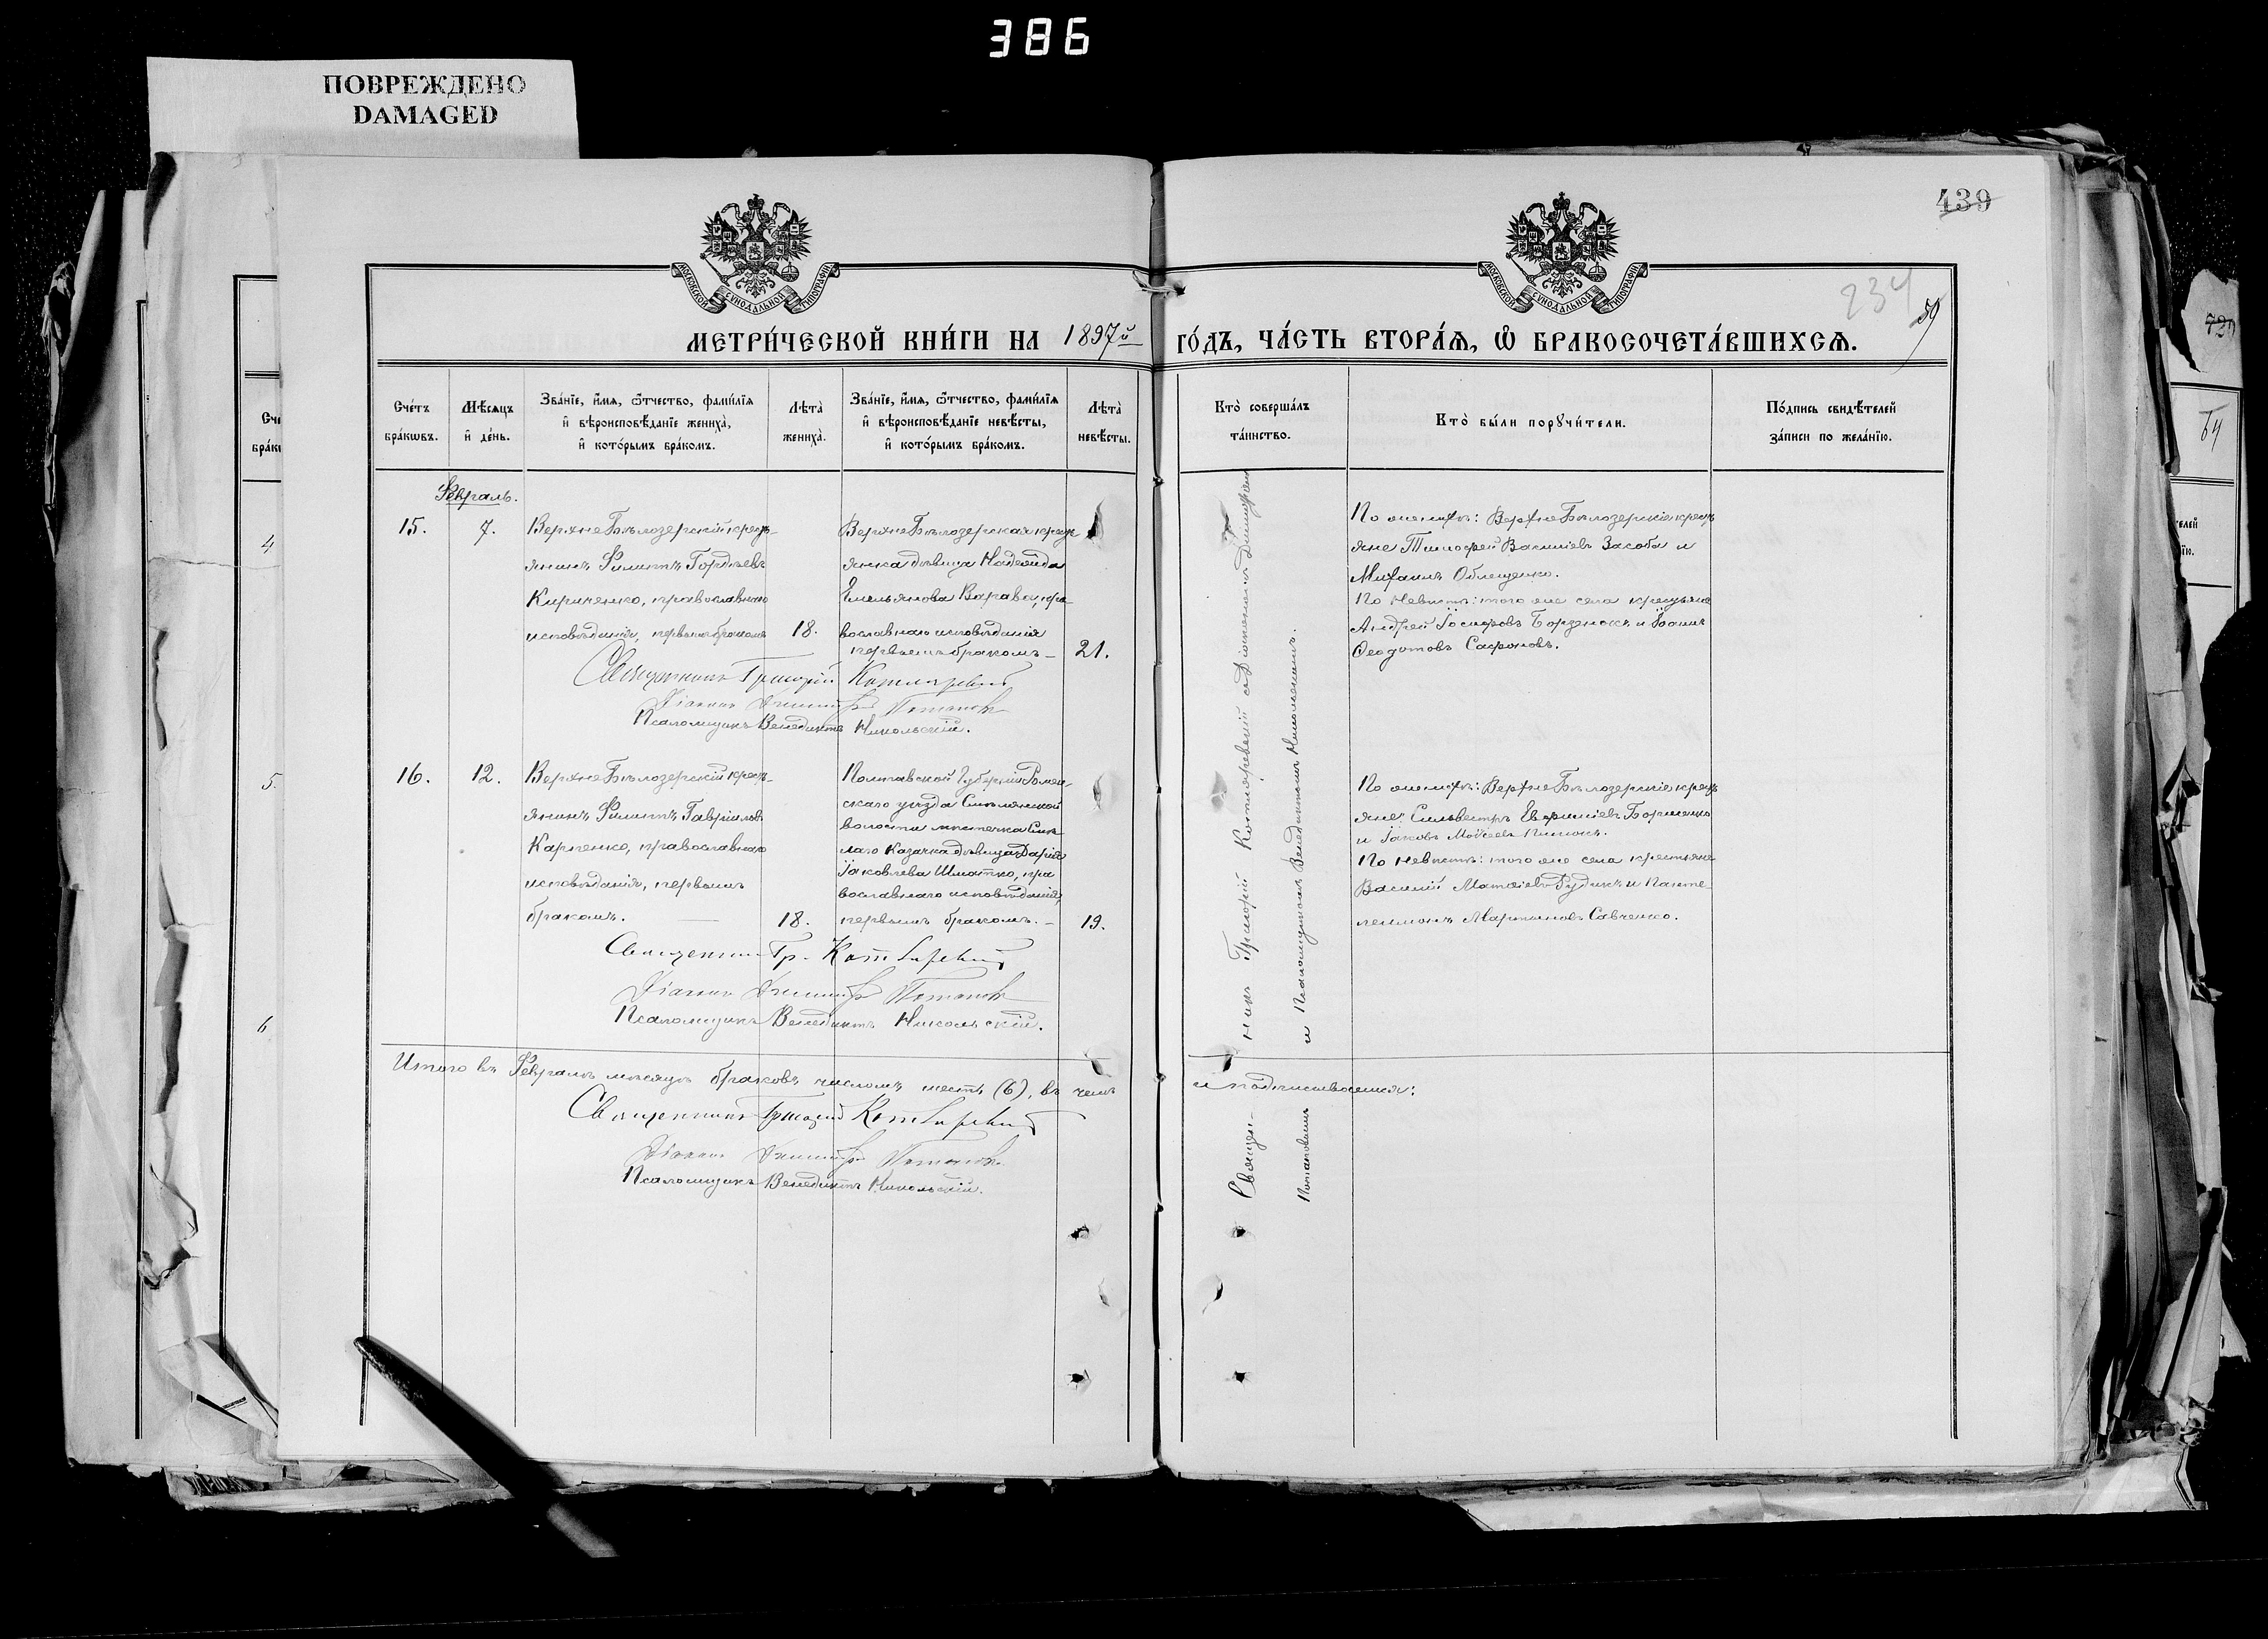 386
ПОВРЕЖДЕНО
DAMAGED
439
234
59
МОСКОВСКОЙ СѴНОДАЛЬНОЙ ТИПОГРАФІИ
МОСКОВСКОЙ СѴНОДАЛЬНОЙ ТИПОГРАФІИ
МЕТРИ́ЧЕСКОЙ КНИ́ГИ НА 1897й
ГО́ДЪ, ЧА́СТЬ ВТОРА́Я, Ѡ҆ БРАКОСОЧЕТА́ВШИХСЯ.
Сче́тъ
бра́кѡвъ.
Мѣ́сяцъ
и҆ де́нь.
Зва́нїе, и҆́мя, ѻ҆́тчество, фами́лїя
и҆ вѣроисповѣ́данїе жениха̀,
и҆ кото́рымъ бра́комъ.
Лѣта̀
жениха̀.
Зва́нїе, и҆́мя, ѻ҆́тчество, фами́лїя
и҆ вѣроисповѣ́данїе невѣ́сты,
и҆ кото́рымъ бра́комъ.
Лѣта̀
невѣ́сты.
Кто̀ соверша́лъ
та́инство.
Кто̀ бы́ли порꙋчи́тели.
По́дпись свидѣ́телей
за́писи по жела́нїю.
Февраль.
15.
7.
Верхне Бѣлозерскій кресть-
янинъ Филиппъ Гордѣевъ
Кириченко, православнаго
исповѣданія, первымъ бракомъ
18.
Верхне Бѣлозерская крестья
янка дѣвица Надежда
Емельянова Варава, пра-
вославнаго исповѣданія
первымъ бракомъ –
21.
Священникъ Григорій Котляревскій
Діаконъ Димитрій Потаповъ
Псаломщикъ Венедиктъ Никольскій.
По женихѣ: Верхне Бѣлозерскіе кресть
яне Тимофей Василіевъ Засоба и
Михаилъ Облещенко.
По Невѣстѣ: того же села крестьяне
Андрей Іосифовъ Борзенокъ и Іоаннъ
Ѳеодотовъ Сафоновъ.
16.
12.
Верхне Бѣлозерскій кресть-
янинъ Филиппъ Гавріиловъ
Карпенко, православнаго
исповѣданія, первымъ
бракомъ. –
18.
Полтавской Губерніи Ромен-
скаго уѣзда Смѣлянской
волости мѣстечка Смѣ
лаго Казачка дѣвица Дарія
Іаковлева Шматко, пра
вославнаго исповѣданія,
первымъ бракомъ. –
19.
Священникъ Гр. Котляревскій
Діаконъ Димитрій Потаповъ
Псаломщикъ Венедиктъ Никольскій.
По женихѣ: Верхне Бѣлозерскіе кресть
яне Сильвестръ Евфиміевъ Борменко
и Іаковъ Моѵсеевъ
По Невѣстѣ: того же села крестьяне
Василій Матѳіевъ Рудикъ и Панте-
леимонъ Мартиновъ Савченко.
Священ-никъ Григорій Котляревскій съ Діакономъ Димитріемъ
Потаповымъ и Псаломщикомъ Венедиктомъ Никольскимъ.
Итого въ Февралѣ мѣсяцѣ браковъ числомъ шесть (6), въ чемъ и подписываемся:
Священникъ Григорій Котляревскій
Діаконъ Димитрій Потаповъ
Псаломщикъ Венедиктъ Никольскій.
4
5.
6